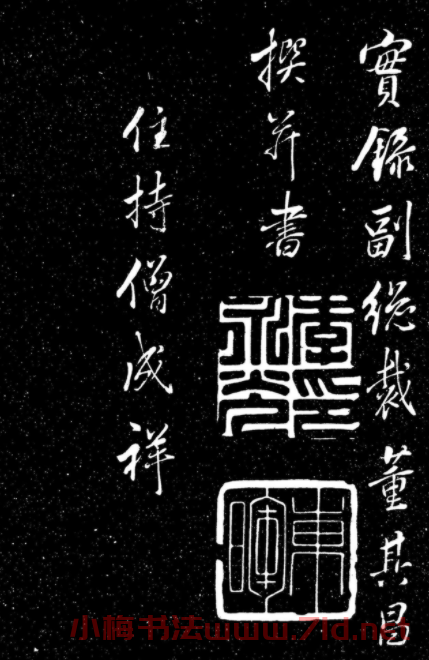 實錄副總裁董其昌
撰并書
住持僧成祥
小梅书法www.7id.net